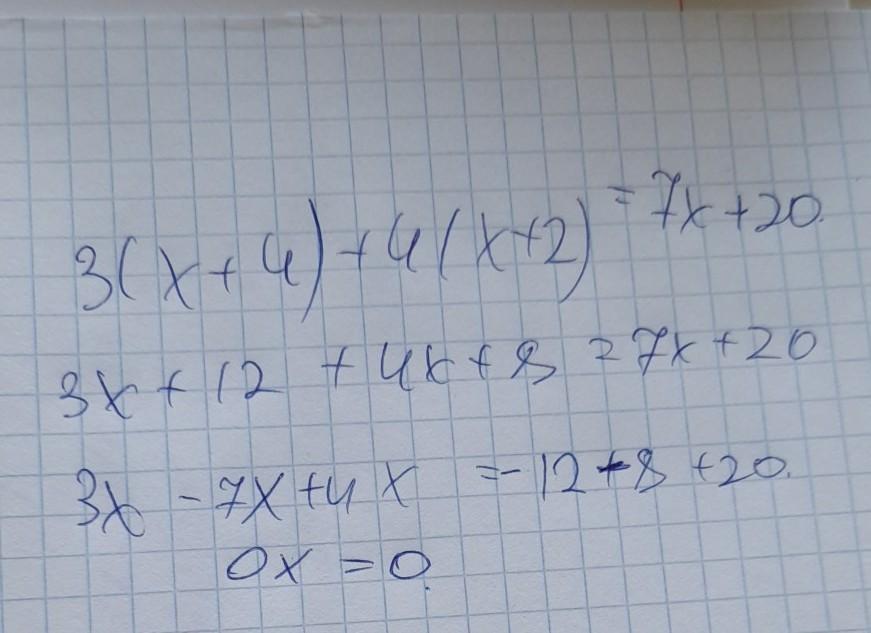 3(x+4)+4(x+2)=7x+20.
3x+12+4x+8=7x+20
3x-7x+4x=-12-8+20.
0x=0.